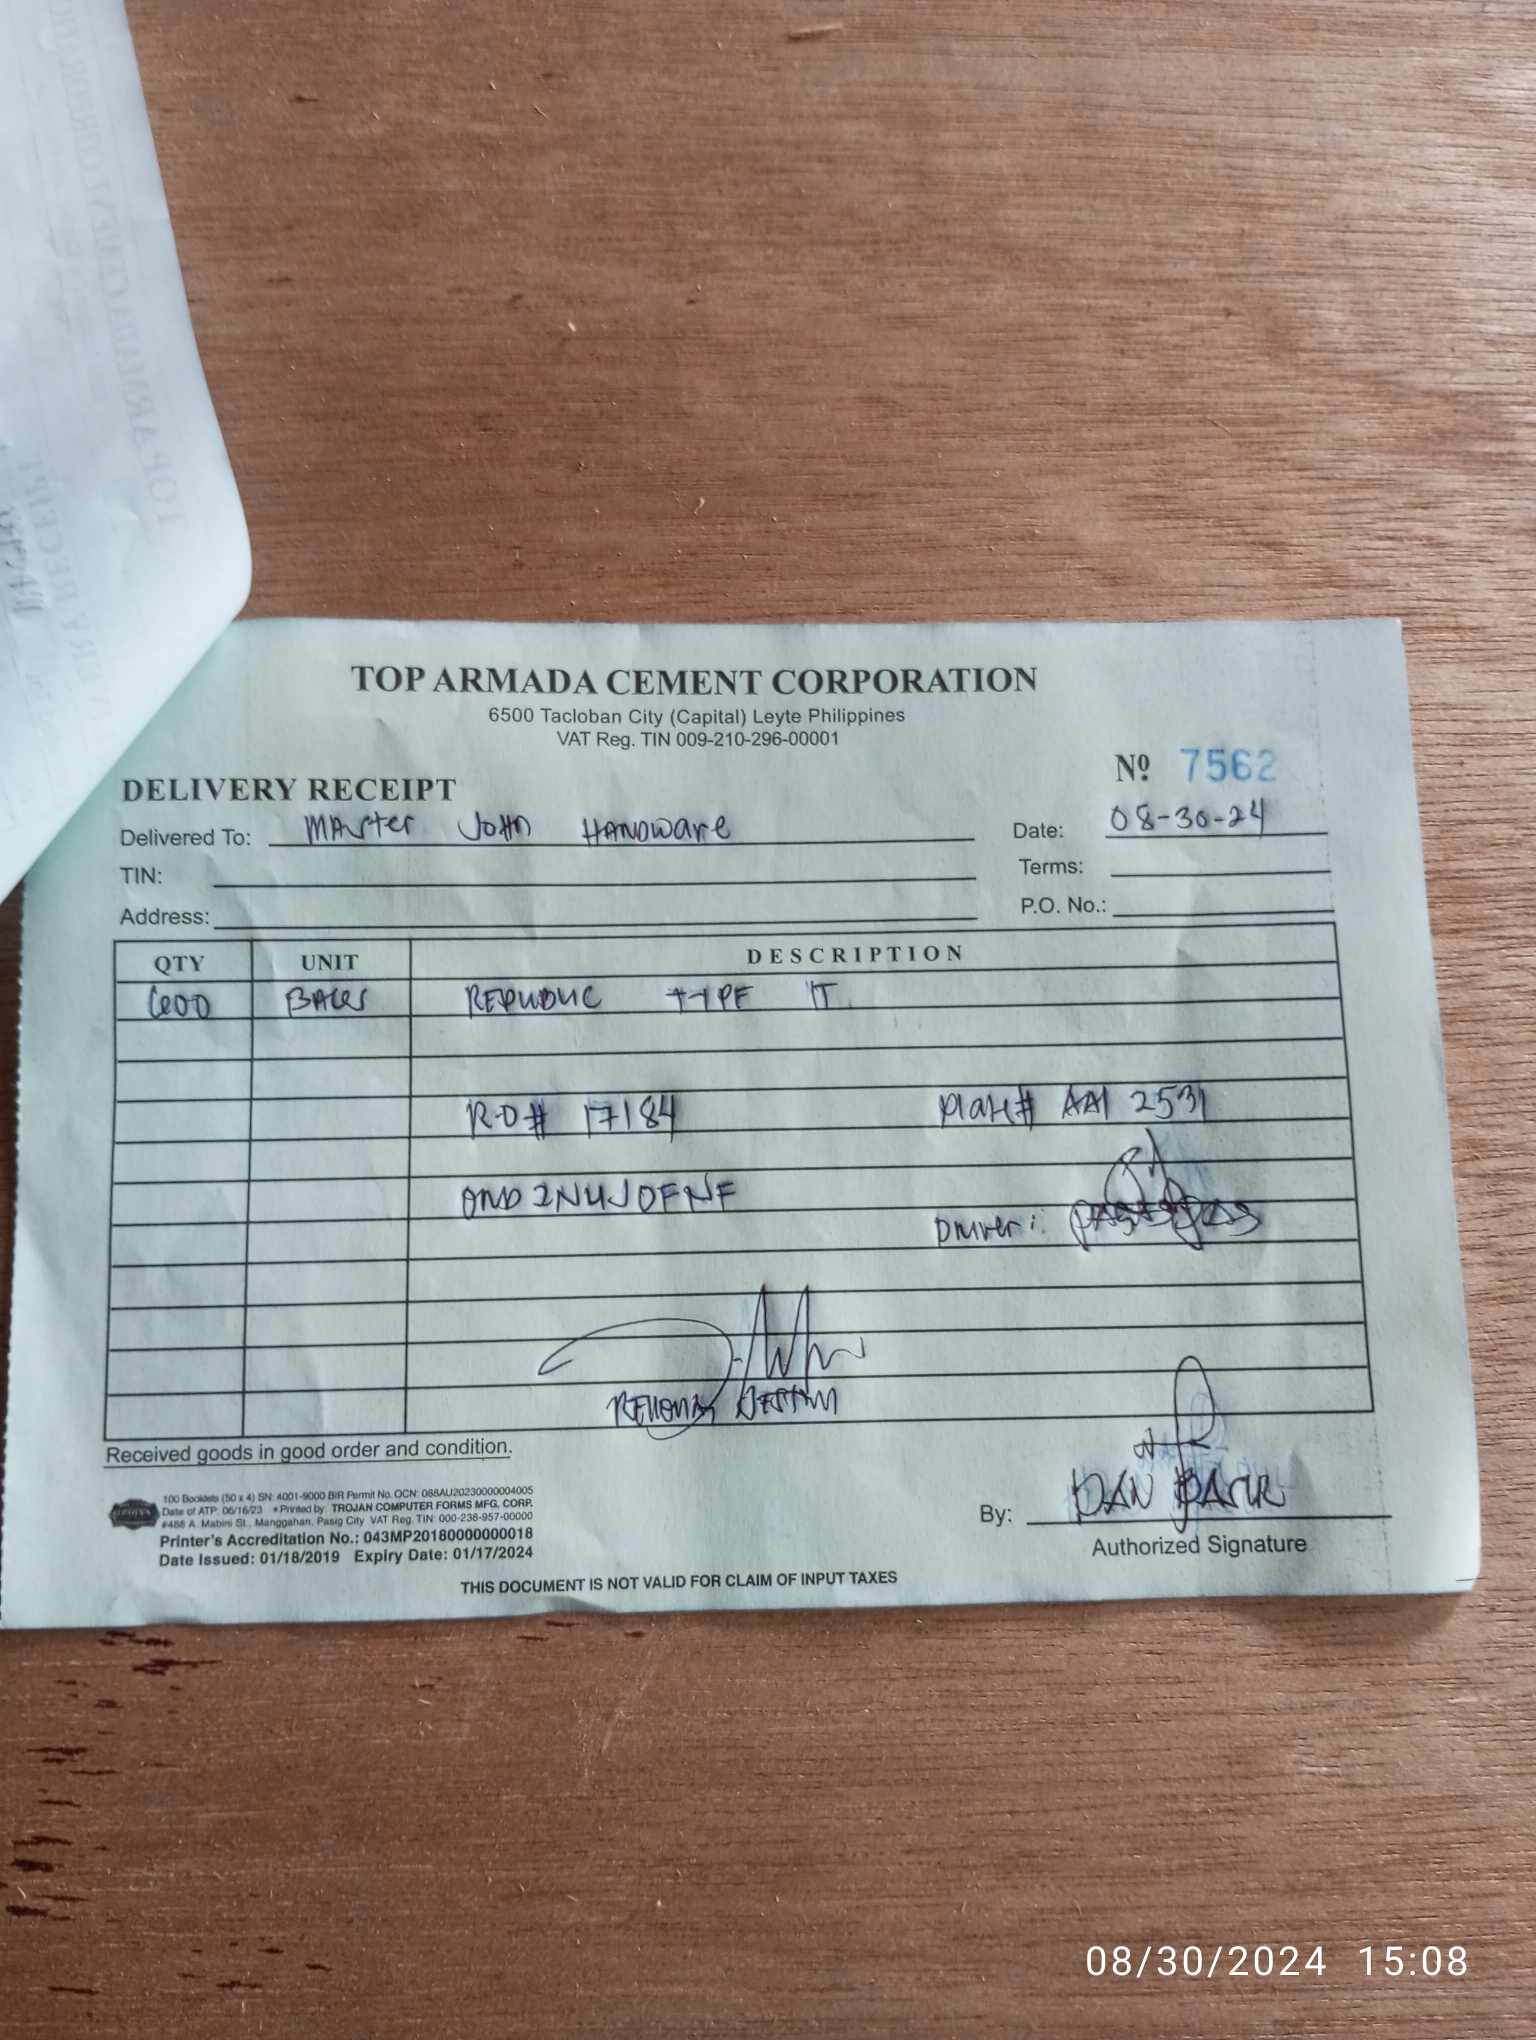 TOP ARMADA CEMENT CORPORATION
6500 Tacloban City (Capital) Leyte Philippines
VAT Reg. TIN 009-210-296-00001
Nº 7562
DELIVERY RECEIPT
Delivered To: MAster John HARDware
Date: 08-30-24
TIN:
Terms:
Address:
P.O. No.:
QTY UNIT DESCRIPTION
600 BAGS REPUBLIC TYPE 1T
R.O# 17184 Plate# AAI 2531
Driver:
Received goods in good order and condition.
100 Booklets (50 x 4) SN: 4001-9000 BIR Permit No. OCN: 088AU20230000004005
Date of ATP: 06/16/23 * Printed by: TROJAN COMPUTER FORMS MFG. CORP.
#488 A. Mabini St., Manggahan, Pasig City VAT Reg. TIN: 000-238-957-00000
Printer's Accreditation No.: 043MP20180000000018
Date Issued: 01/18/2019 Expiry Date: 01/17/2024
By: DAN
Authorized Signature
THIS DOCUMENT IS NOT VALID FOR CLAIM OF INPUT TAXES
08/30/2024 15:08